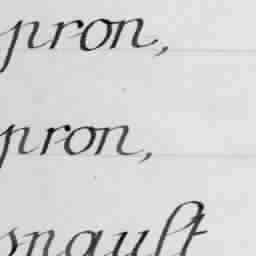 pron,
pron,
snault